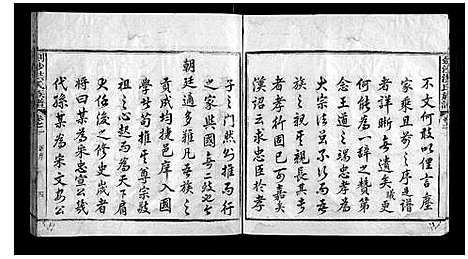 不文何敢以俚言塵
家乘且前之序述譜
者詳晰毋遺矣
何能為一辭之贊第
念王道之端忠孝為
大宗法
族之親其親長其長
者孝行固已可嘉矣
漢詔云求忠臣於孝
子之門然則孝而行
之家與國無二致也
朝廷適多難凡族之
貢成均捷邑庠入國
學生苟推生尊宗敬
祖之心起而為天下肩
佐後之修史者
將曰某為宋忠宣公幾
代孫某為宋文安公
氏宗譜
四